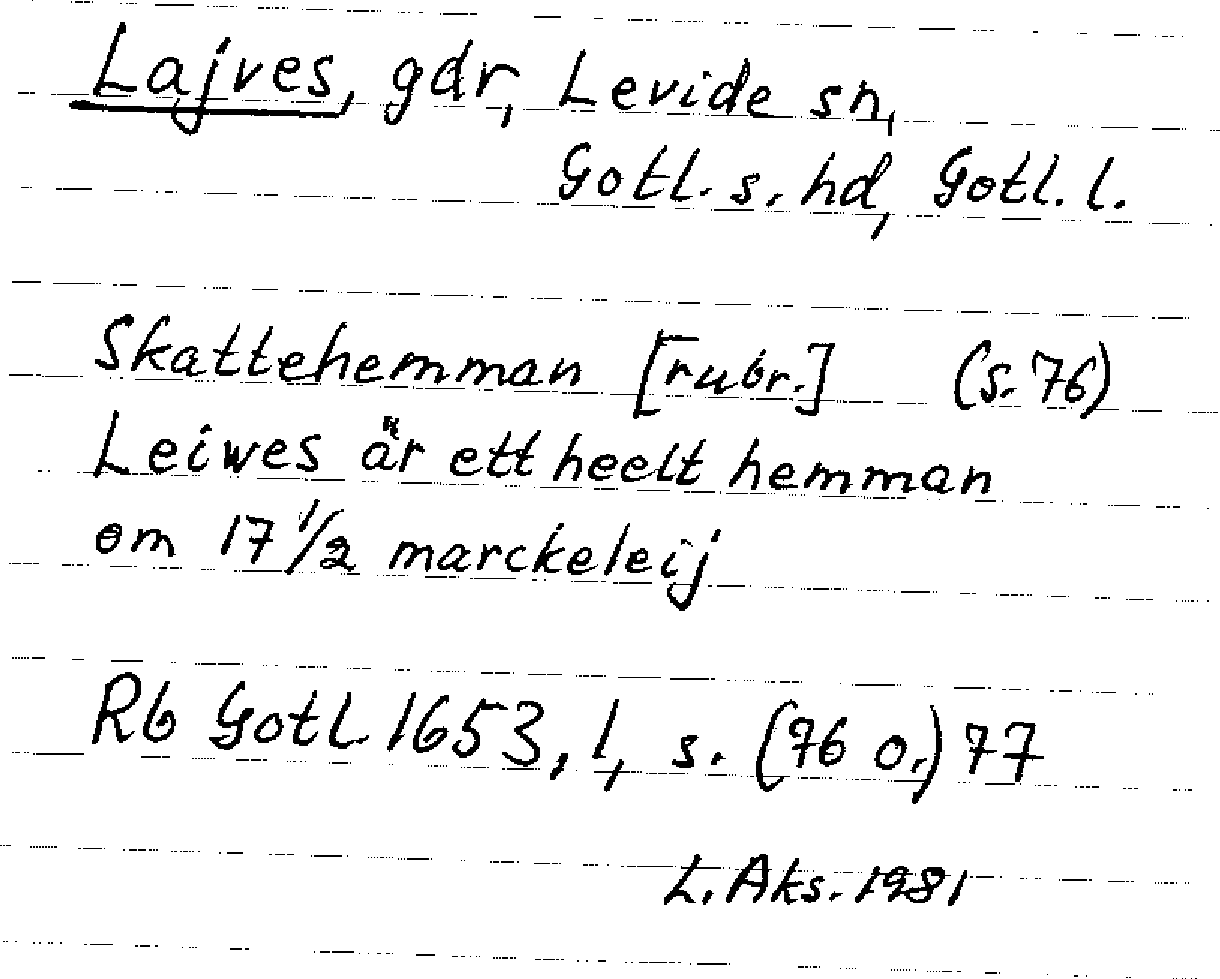 Lajves, gdr, Levide sn,
Gotl. s. hd, Gotl. l.
Skattehemman [rubr.] (s. 76)
Leiwes är ett heelt hemman
om 17 1/2 marckeleij
Rb Gotl 1653, 1, s. (76 o.) 77
L. Aks. 1981